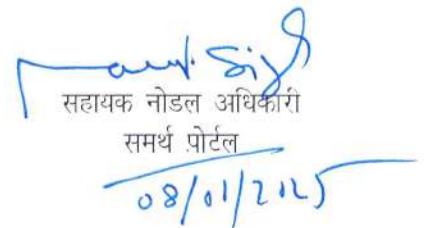 Singh
सहायक नोडल अधिकारी
समर्थ पोर्टल
08/01/2025